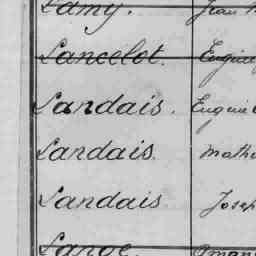 Lamy. Jean
Lancelot. Eugène
Landais. Eugène
Landais. Math
Landais Josep
Lange